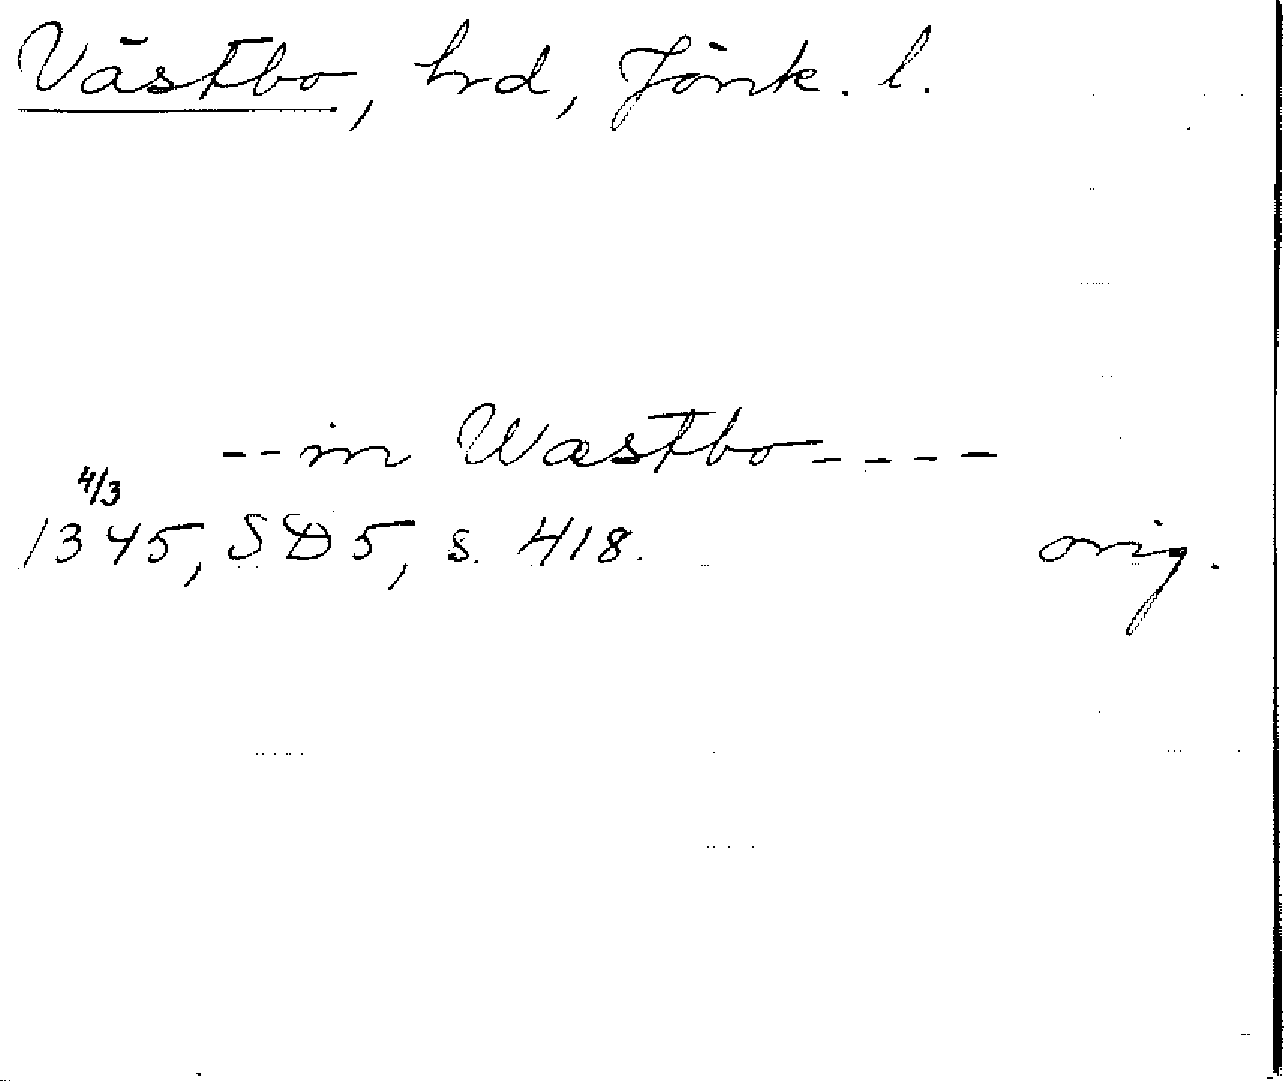 Västbo, hrd, Jönk. l.
-- in Wæstbo ----
4/3
1345, SD 5, s. 418. orig.